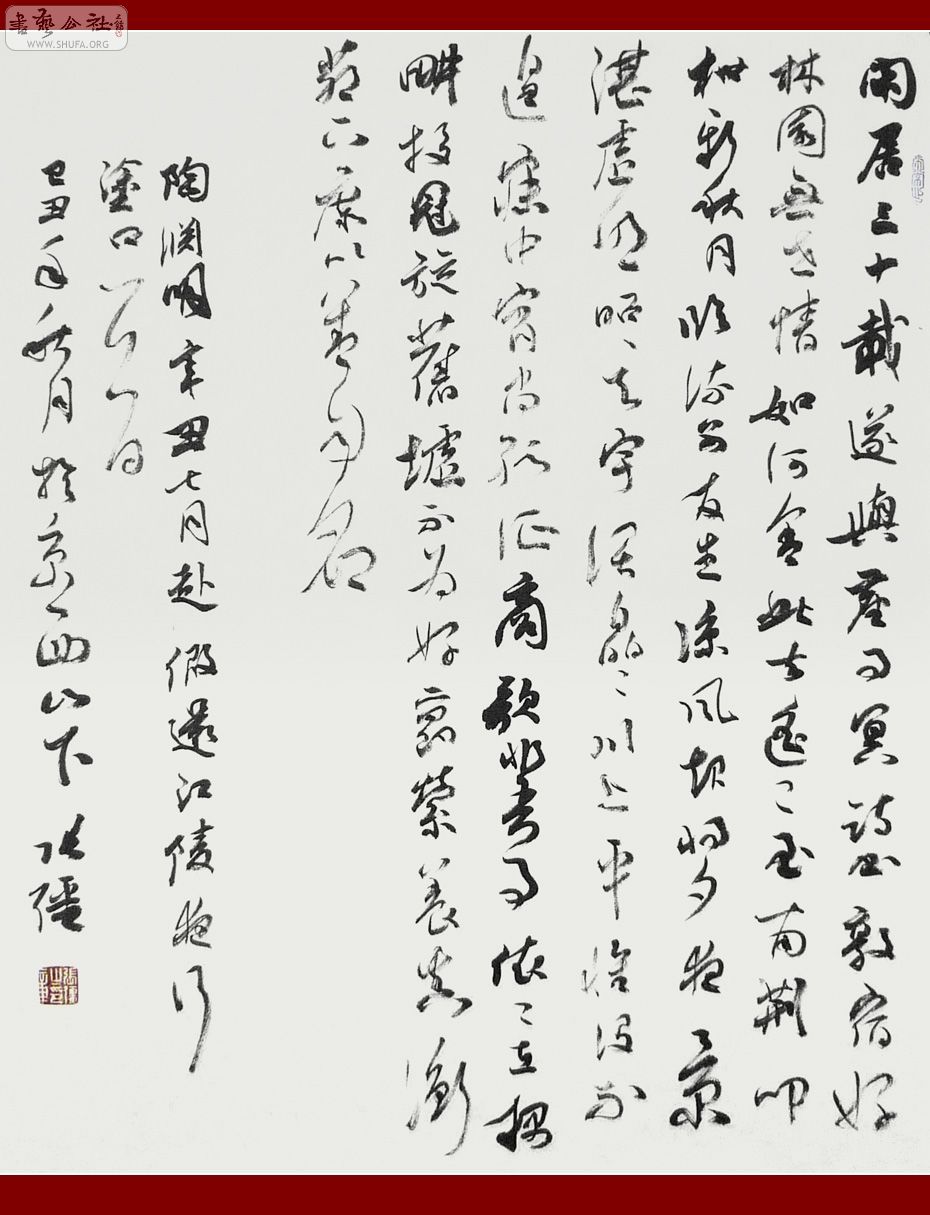 書藝公社
WWW.SHUFA.ORG
閑居三十載遂與塵事冥詩書敦宿好
林園無世情如何舍此去遙〻至南荊叩
枻新秋月臨流別友生涼風起將夕夜景
湛虛明昭〻天宇闊皛〻川上平懷役不
遑寐中宵尚孤征商歌非吾事依〻在耦
畊投冠旋舊墟不為好爵縈養真衡
茅下庶以善自名
陶淵明辛丑七月赴假還江陵夜行
塗口
己丑年秋月於京西山下 張